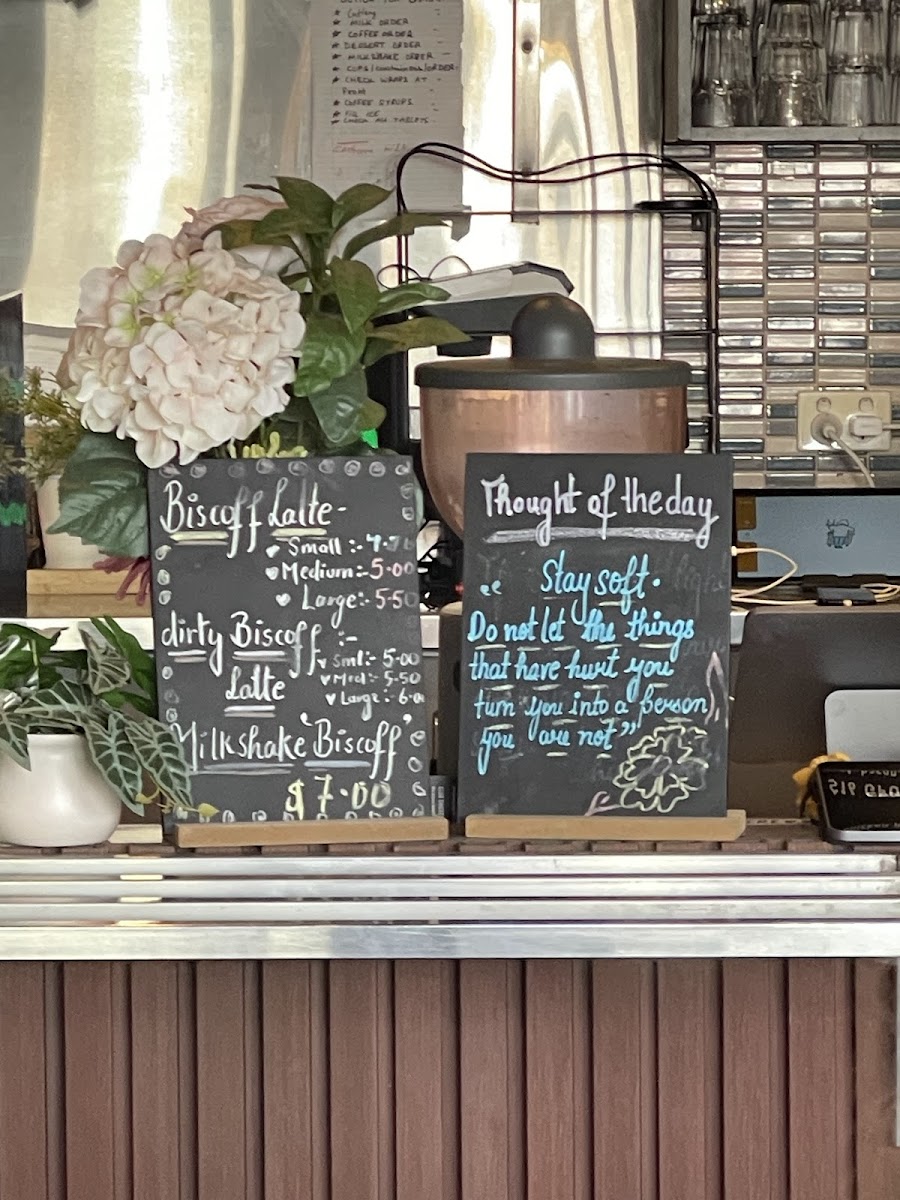 ★ Cutlery
★ MILK ORDER
★ COFFEE ORDER
★ DESSERT ORDER
★ MILKSHAKE ORDER
★ CHECK WRAPS AT
Front
★ COFFEE SYRUPS
★ FILL ICE
CHECK All TABLETS
Biscoff Latte-
Small :-
Medium:- 5.00
Large:- 5.50
dirty Biscoff :-
Latte
Sml:- 5.00
Med:- 5.50
Large :- 6.0
Milkshake 'Biscoff'
$7.00
Thought of the day
“ Stay soft.
Do not let the things
that have hurt you
turn you into a person
you are not”